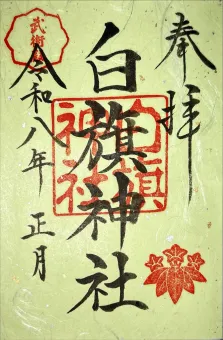 奉拝
白旗神社
令和八年 正月
白旗神社